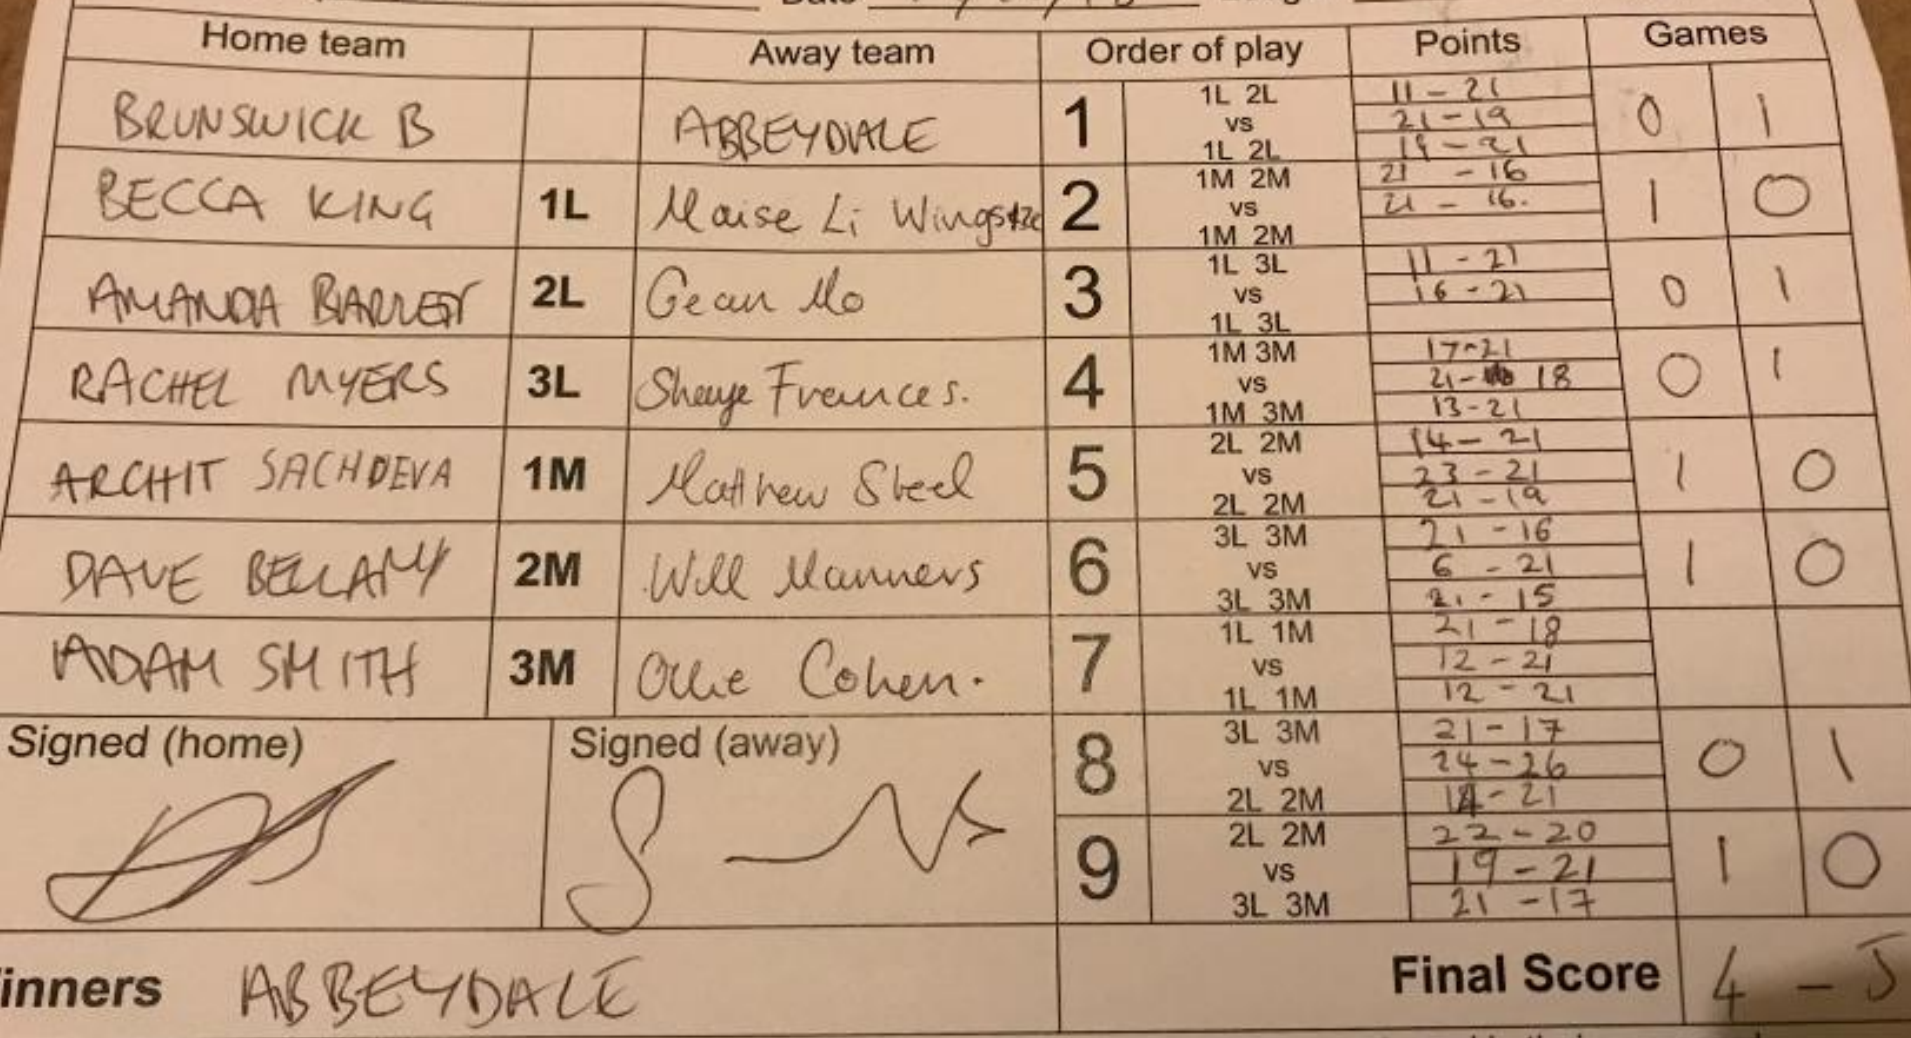 Home team Away team Order of play Points Games
BRUNSWICK B ABBEYDALE 1 1L 2L vs 1L 2L 11 - 21 21 - 19 19 - 21 0 1
BECCA KING 1L Maise Li Wingsze 2 1M 2M vs 1M 2M 21 - 16 21 - 16. 1 0
AMANDA BARRETT 2L Gean Mo 3 1L 3L vs 1L 3L 11 - 21 16 - 21 0 1
RACHEL MYERS 3L Frances. 4 1M 3M vs 1M 3M 17-21 21- 18 13-21 0 1
ARCHIT SACHDEVA 1M Matthew Steel 5 2L 2M vs 2L 2M 14 - 21 23 - 21 21 - 19 1 0
DAVE BELLAMY 2M Will Manners 6 3L 3M vs 3L 3M 21 - 16 6 - 21 21 - 15 1 0
ADAM SMITH 3M Ollie Cohen. 7 1L 1M vs 1L 1M 21 - 18 12 - 21 12 - 21
Signed (home) Signed (away) 8 3L 3M vs 2L 2M 21 - 17 24 - 26 14 - 21 0 1
9 2L 2M vs 3L 3M 22 - 20 19 - 21 21 - 17 1 0
inners ABBEYDALE Final Score 4 - 5